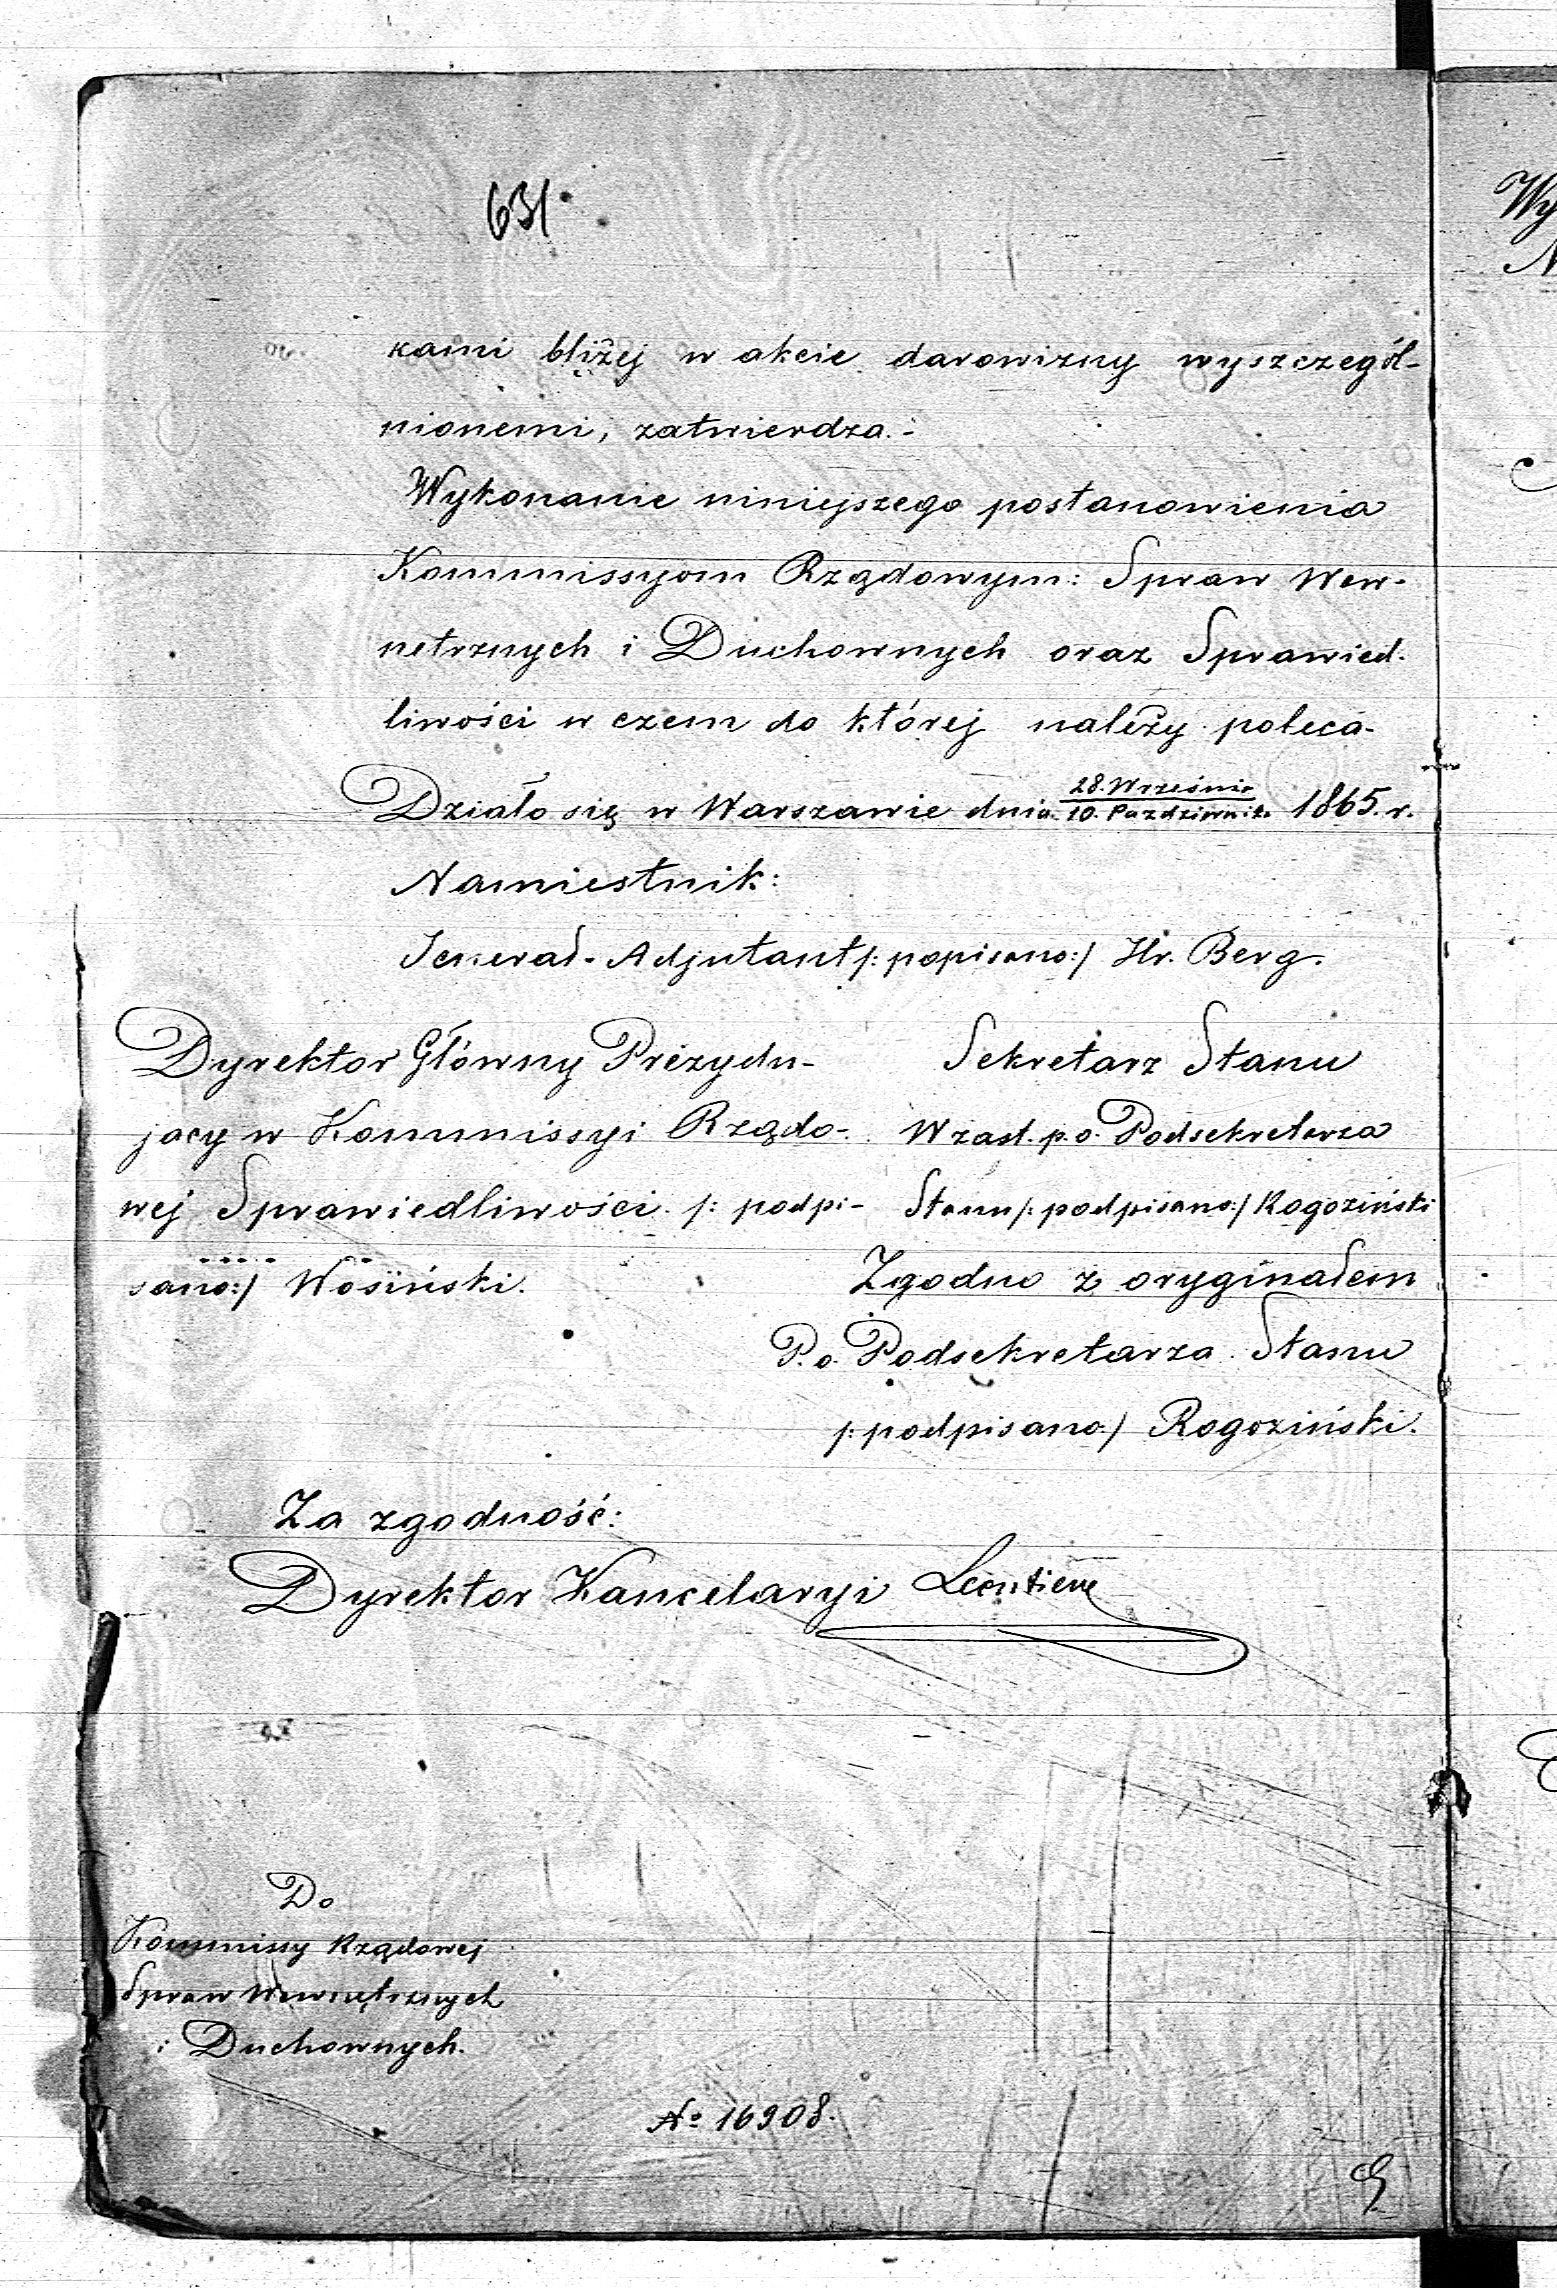 631.
kami bliżej w akcie darowizny wyszczegól-
nionemi, zatwierdza.-
Wykonanie niniejszego postanowienia
Kommissyom Rządowym: Spraw Wew-
netrznych i Duchownych oraz Sprawied-
liwości w czem do której należy poleca-
Działo się w Warszawie dnia 28. Września / 10. Paździenik. 1865. r.
Namiestnik:
Jenerał-Adjutant /: popisano:/ Hr. Berg.
Dyrektor Główny Prezydu-
jacy w Kommissyi Rządo-
wej Sprawiedliwości /: podpi-
sano:/ Wosiński.
Sekretarz Stanu
W zast. p. o. Podsekretarza
Stanu /: podpisano:/ Rogoziński
Zgodno z oryginałem
P. o. Podsekretarza Stanu
/: podpisano:/ Rogoziński.
Za zgodność:
Dyrektor Kancelaryi
Do
Kommissy Rządowej
Spraw Wewnętrznych
i Duchownych.
No 16908.